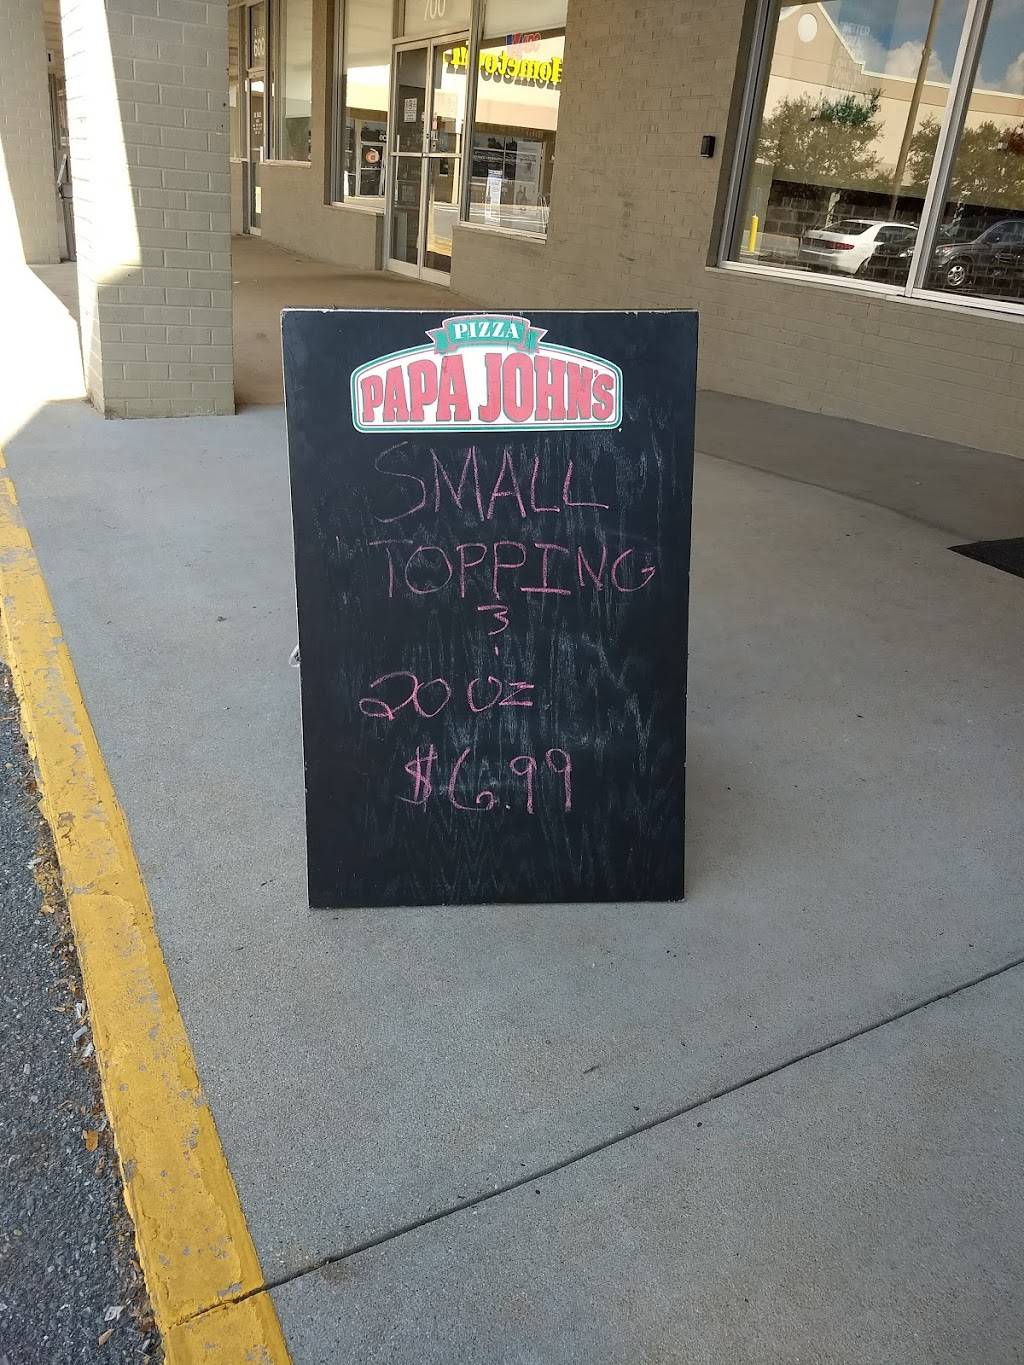 700
Hometown
PIZZA
PAPA JOHN'S
SMALL
1 TOPPING
&
20 OZ
$6.99